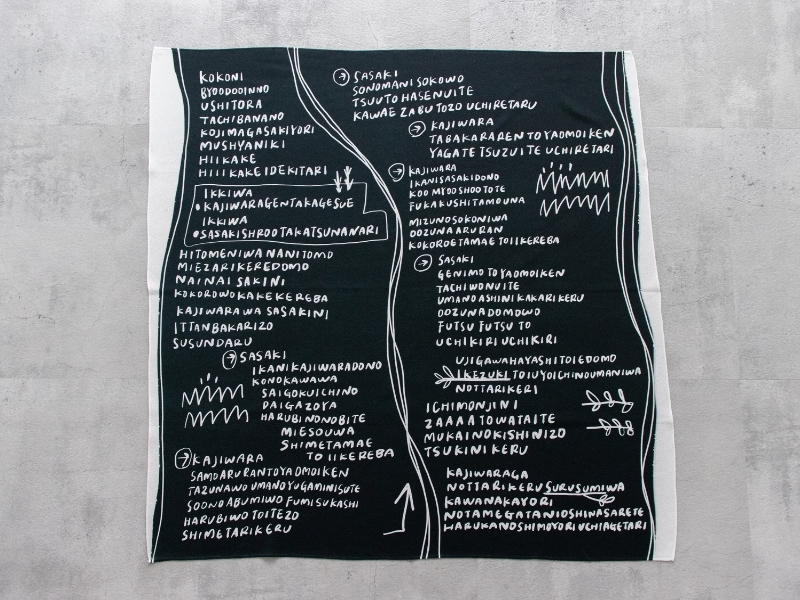 KOKONI
BYOODOOINNO
USHITORA
TACHIBANANO
KOJIMAGASAKIYORI
MUSHYANIKI
HIIKAKE
HIIIKAKEIDEKITARI
IKKIWA
•KAJIWARAGENTAKAGESUE
IKKIWA
•SASAKISHIROOTAKATSUNANARI
HITOMENIWA NANITOMO
MIEZARIKEREDOMO
NAINAI SAKINI
KOKOROWO KAKEKEREBA
KAJIWARAWA SASAKINI
ITTANBAKARIZO
SUSUNDARU
→SASAKI
IKANIKAJIWARADONO
KONOKAWAWA
SAIGOKUICHINO
DAIGAZOYA
HARUBINONOBITE
MIESOUWA
SHIMETAMAE
TO IIKEREBA
→KAJIWARA
SAMOARURANTOYAOMOIKEN
TAZUNAWO UMANOYUGAMINISUTE
SOONOABUMIWO FUMISUKASHI
HARUBIWO TOITEZO
SHIMETARIKERU
→SASAKI
SONOMANI SOKOWO
TSUUTO HASENUITE
KAWAE ZABUTOZO UCHIRETARU
→KAJIWARA
TABAKARAREN TO YAOMOIKEN
YAGATE TSUZUITE UCHIRETARI
→KAJIWARA
IKANISASAKIDONO
KOOMYOOSHOOTOTE
FUKAKUSHITAMOUNA
MIZUNOSOKONIWA
OOZUNAARURAN
KOKOROETAMAE TOIIKEREBA
→SASAKI
GENIMO TO YAOMOIKEN
TACHIWONUITE
UMANOASHINIKAKARIKERU
OOZUNADOMOWO
FUTSU FUTSU TO
UCHIKIRIUCHIKIRI
UJIGAWAHAYASHITOIEDOMO
IKEZUKITOIUYOICHINOUMANIWA
NOTTARIKERI
ICHIMONJINI
ZAAATOWATAITE
MUKAINOKISHINIZO
TSUKINIKERU
KAJIWARAGA
NOTTARIKERUSURUSUMIWA
KAWANAKAYORI
NOTAMEGATANIOSHINASARETE
HARUKANOSHIMOYORIUCHIAGETARI